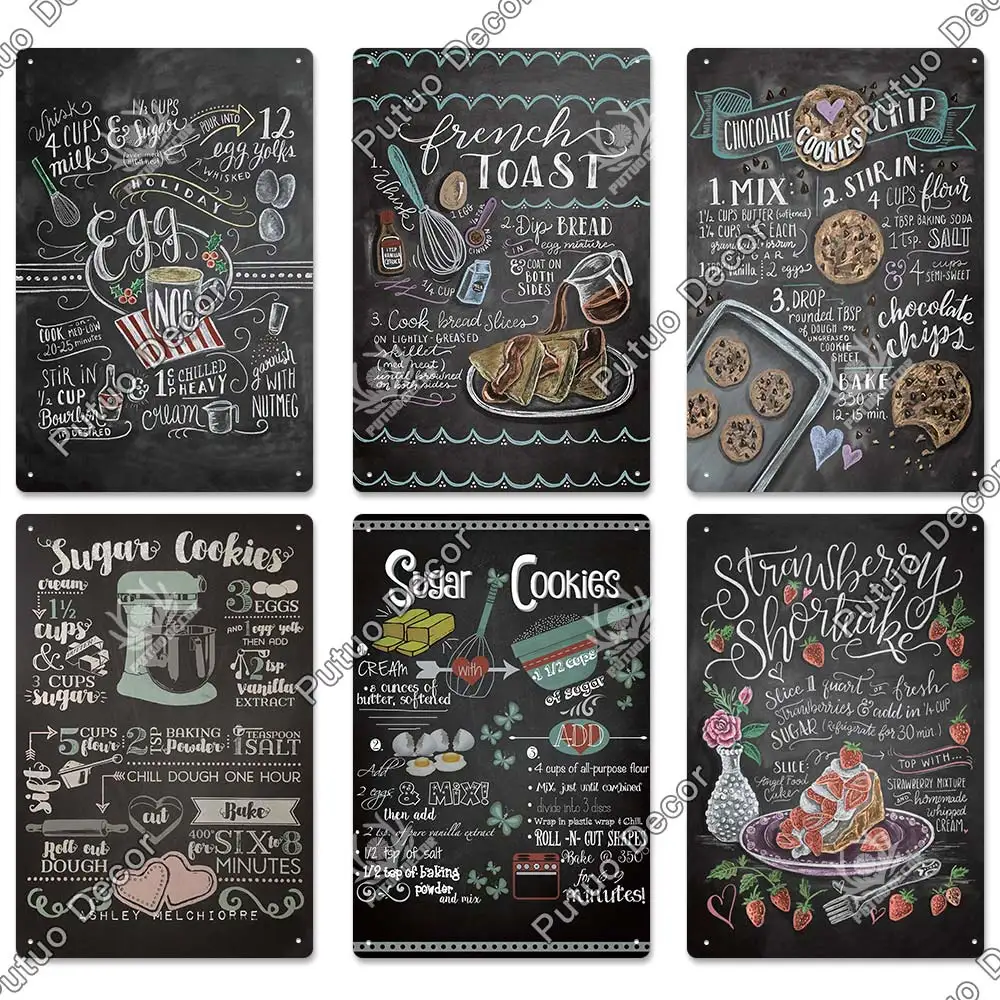 Putuo Decor
Whisk
4 CUPS
milk
1½ CUPS
& Sugar
POUR INTO
12
egg yolks
WHISKED
HOLIDAY
Egg
NOG
COOK on MED-LOW
20-25 minutes
STIR IN
½ CUP
Bourbon
IF DESIRED
& 1 CHILLED
HEAVY
cream
garnish
WITH
NUTMEG
french
TOAST
1.
Whisk
1 EGG
1 TSP
VANILLA
¼ CUP
2. Dip BREAD
in
egg mixture
& COAT ON
BOTH
SIDES
3. Cook bread slices
ON LIGHTLY-GREASED
skillet
(med heat)
until browned
on both sides
CHOCOLATE CHIP
COOKIES
1. MIX:
1½ CUPS BUTTER (softened)
1¼ CUPS EACH
SUGAR
vanilla 2 eggs
2. STIR IN:
4 CUPS flour
2 TBSP. BAKING SODA
1 tsp. SALT
& 4 cups
SEMI-SWEET
chocolate
chips
3. DROP
rounded TBSP
of DOUGH on
UNGREASED
COOKIE
SHEET
BAKE
350°F
12-15 min.
Sugar Cookies
cream
1½
cups
&
3 CUPS
sugar
3
EGGS
AND 1 egg yolk
THEN ADD
2 tsp
vanilla
EXTRACT
sift
5 CUPS
flour
2 TSP BAKING
Powder
1 TEASPOON
SALT
CHILL DOUGH ONE HOUR
Roll out
DOUGH
cut
Bake
400° for SIX to 8
MINUTES
ASHLEY MELCHIORRE
Sugar Cookies
CREAM
with
• 8 ounces of
butter, softened
1 1/2 cups
of sugar
2
Add
2 eggs & MIX!
then add
2 tsp. of pure vanilla extract
1/2 tsp of salt
1/2 tsp of baking
powder
and mix
3
ADD
• 4 cups of all-purpose flour
• Mix just until combined
• divide into 3 discs
• Wrap in plastic wrap & Chill
ROLL-N-CUT SHAPES
Bake @ 350
for
minutes!
Strawberry
Shortcake
Slice 1 quart OF fresh
strawberries & add in ¼ CUP
SUGAR (Refrigerate for 30 min.)
SLICE:
Angel Food
Cake
TOP WITH...
STRAWBERRY MIXTURE
AND homemade
whipped
CREAM